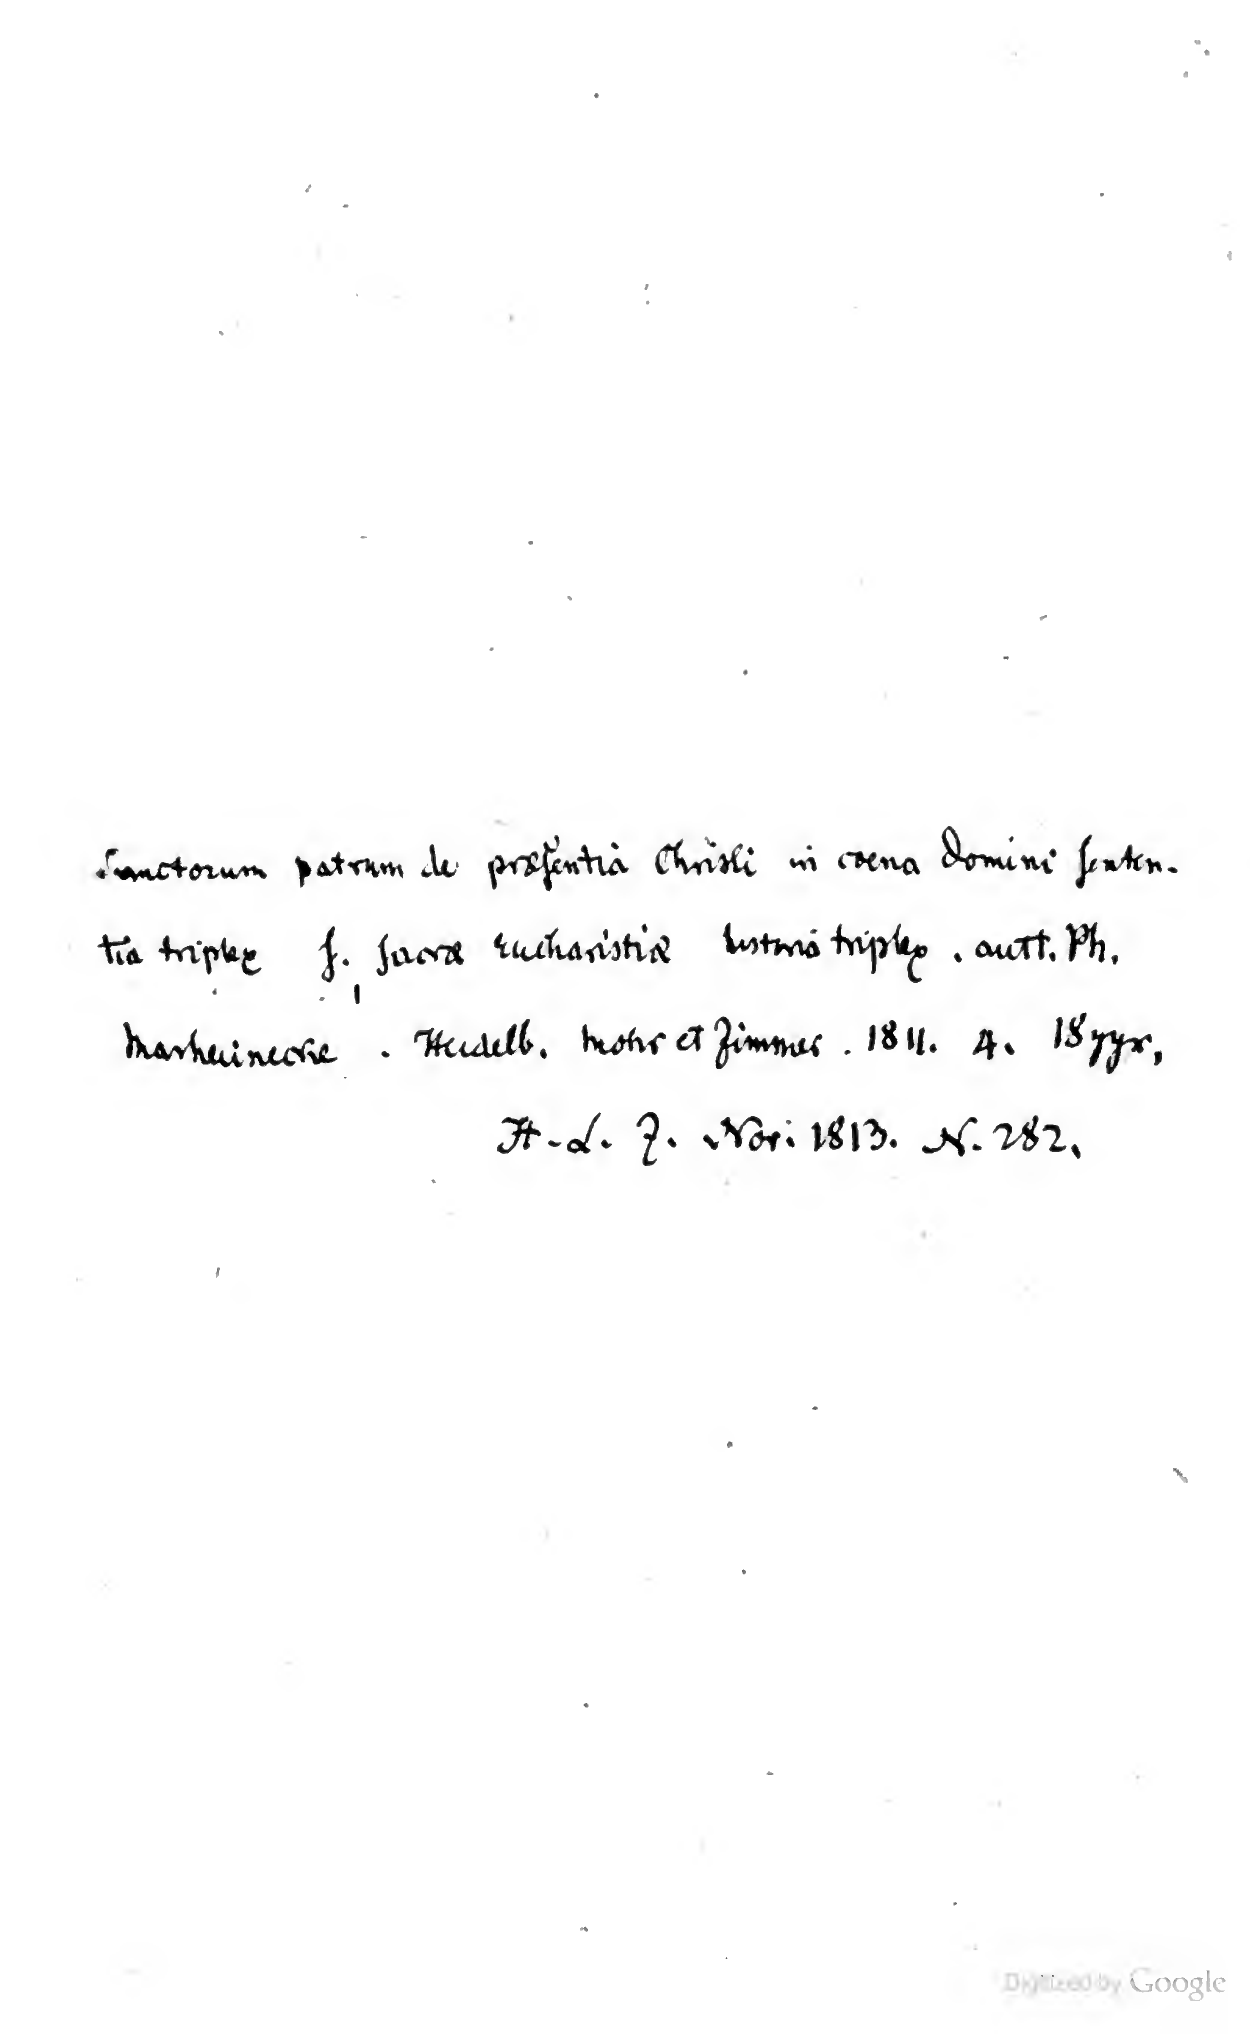 Sanctorum patrum de præsentia Christi in coena Domini senten-
tia triplex s. sacræ Eucharistiæ historia triplex. autt. Ph.
Marheineckè. Heidelb. Mohr et Zimmer. 1811. 4. 18 ggr,
A. L. Z. Nov. 1813. N. 282.
Digitized by Google